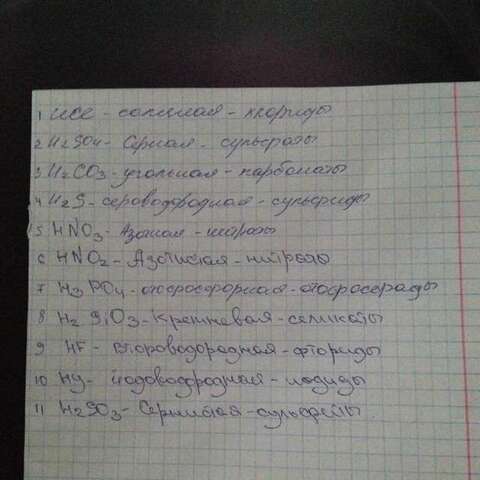 1 HCl - соляная - хлориды
2 H2SO4 - Серная - сульфаты
3 H2CO3 - угольная - карбонаты
4 H2S - сероводородная - сульфиды
5 HNO3 - Азотная - нитраты
6 HNO2 - Азотистая - нитриты
7 H3PO4 - ортофосфорная - ортофосфаты
8 H2SiO3 - Кремневая - селикаты
9 HF - фтороводородная - фториды
10 HY - йодоводородная - иодиды
11 H2SO3 - Сернистая - сульфиты